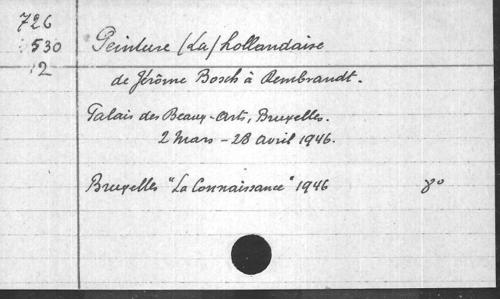 726
530
12
Peinture (La) hollandaise
de Jérôme Bosch à Rembrandt.
Palais des Beaux-Arts, Bruxelles.
2 mars - 28 avril 1946.
Bruxelles "La Connaissance" 1946 8°